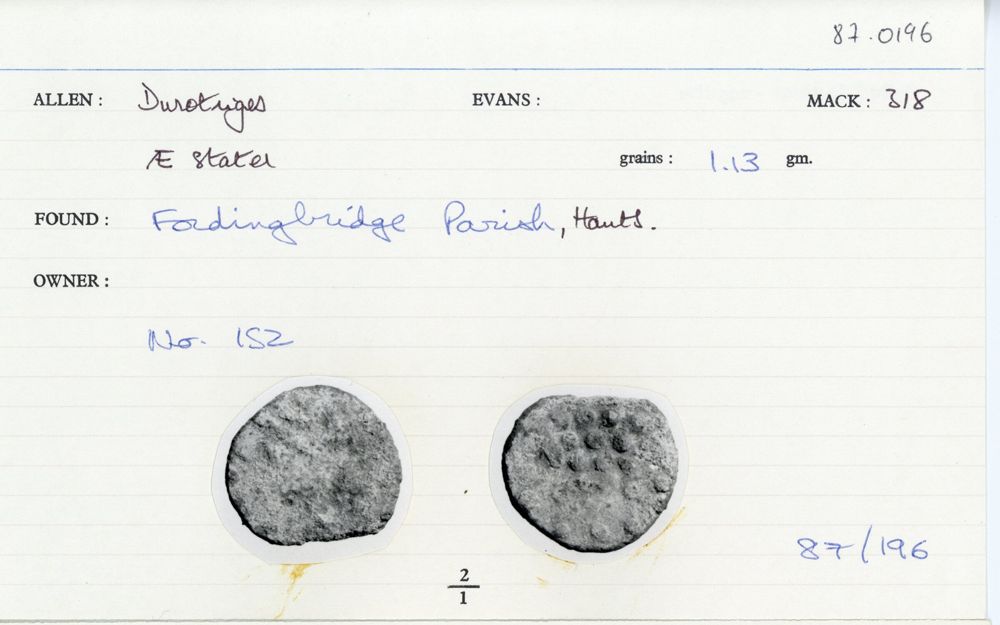 87.0196
ALLEN : Durotriges EVANS : MACK : 318
Æ Stater grains : 1.13 gm.
FOUND : Fordingbridge Parish, Hants.
OWNER :
No. 152
87/196
2
1